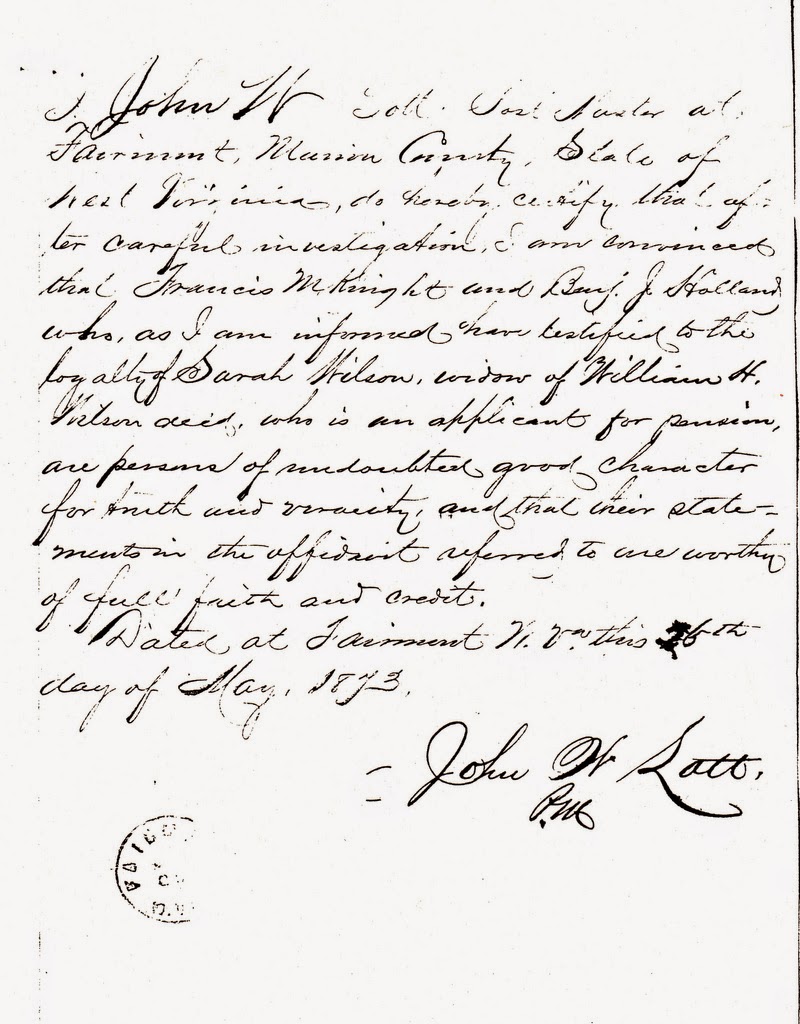 I, John W Lott Post Master at
Fairmont, Marion County, State of
West Virginia, do hereby certify that af-
ter careful investigation, I am convinced
that Francis McKnight and Benj. J Holland
who, as I am informed have testified to the
loyalty of Sarah Wilson, widow of William H.
Wilson decd, who is an applicant for pension,
are persons of undoubted good character
for truth and veracity, and that their state-
ments in the affidavit referred to are worthy
of full faith and credit.
Dated at Fairmont W. Va this 26th
day of May, 1873.
John W Lott.
P.M